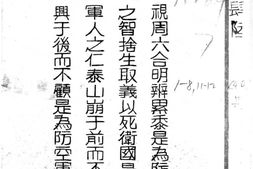 視周六合明辨累黍是為防
之智捨生取義以死衛國是
軍人之仁泰山崩于前而不
興于後而不顧是為防空軍
1-8, 11-12